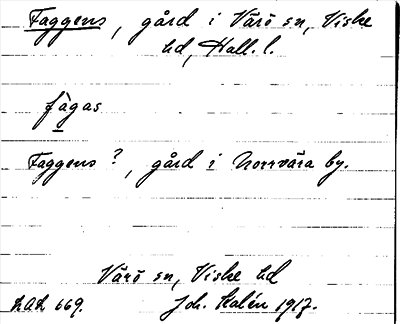 Faggens, gård i Värö sn, Viske
hd, Hall. l.
fàgas
Faggens?, gård i Norrvära by.
Värö sn, Viske hd
LAL 669. Joh. Kalén 1917.